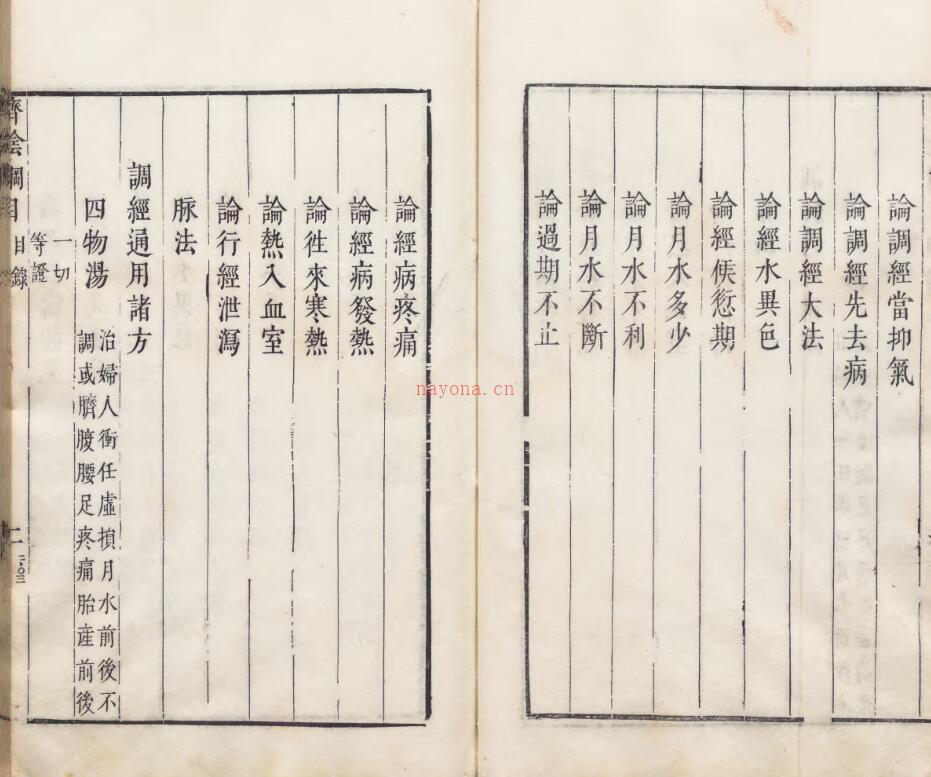 論調經當抑氣
論調經先去病
論調經大法
論經水異色
論經候愆期
論月水多少
論月水不利
論月水不斷
論過期不止
論經病疼痛
論經病發熱
論徃來寒熱
論熱入血室
論行經泄瀉
脉法
調經通用諸方
四物湯 治婦人衝任虛損月水前後不
調或臍腹腰足疼痛胎産前後
一切
等證
濟陰綱目 目錄 二
二〇三
nayona.cn